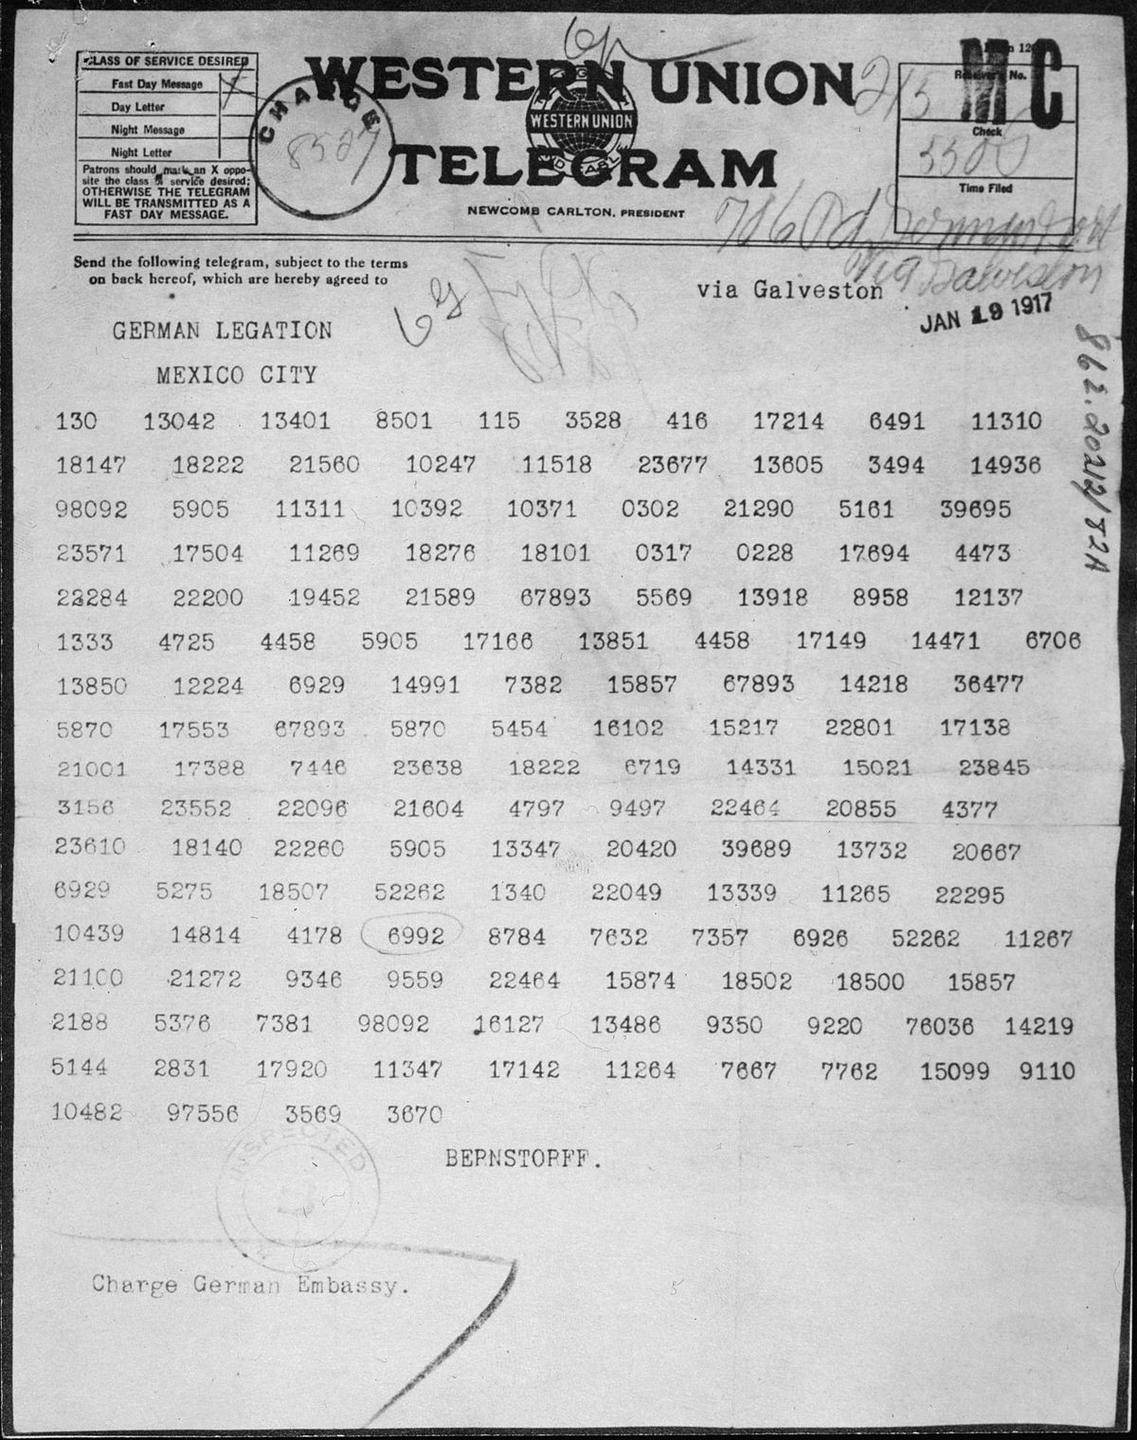 CLASS OF SERVICE DESIRED
Fast Day Message
Day Letter
Night Message
Night Letter
Patrons should mark an X oppo-
site the class of service desired:
OTHERWISE THE TELEGRAM
WILL BE TRANSMITTED AS A
FAST DAY MESSAGE.
CHARGE
8527
WESTERN UNION
WESTERN UNION
TELEGRAM
NEWCOMB CARLTON, PRESIDENT
215
MC
Receiver's No.
Check
Time Filed
Send the following telegram, subject to the terms
on back hereof, which are hereby agreed to
via Galveston
via Galveston
JAN 19 1917
862.20212/82A
GERMAN LEGATION
MEXICO CITY
130 13042 13401 8501 115 3528 416 17214 6491 11310
18147 18222 21560 10247 11518 23677 13605 3494 14936
98092 5905 11311 10392 10371 0302 21290 5161 39695
23571 17504 11269 18276 18101 0317 0228 17694 4473
22284 22200 19452 21589 67893 5569 13918 8958 12137
1333 4725 4458 5905 17166 13851 4458 17149 14471 6706
13850 12224 6929 14991 7382 15857 67893 14218 36477
5870 17553 67893 5870 5454 16102 15217 22801 17138
21001 17388 7446 23638 18222 6719 14331 15021 23845
3156 23552 22096 21604 4797 9497 22464 20855 4377
23610 18140 22260 5905 13347 20420 39689 13732 20667
6929 5275 18507 52262 1340 22049 13339 11265 22295
10439 14814 4178 6992 8784 7632 7357 6926 52262 11267
21100 21272 9346 9559 22464 15874 18502 18500 15857
2188 5376 7381 98092 16127 13486 9350 9220 76036 14219
5144 2831 17920 11347 17142 11264 7667 7762 15099 9110
10482 97556 3569 3670
BERNSTORFF.
INSPECTED
Charge German Embassy.